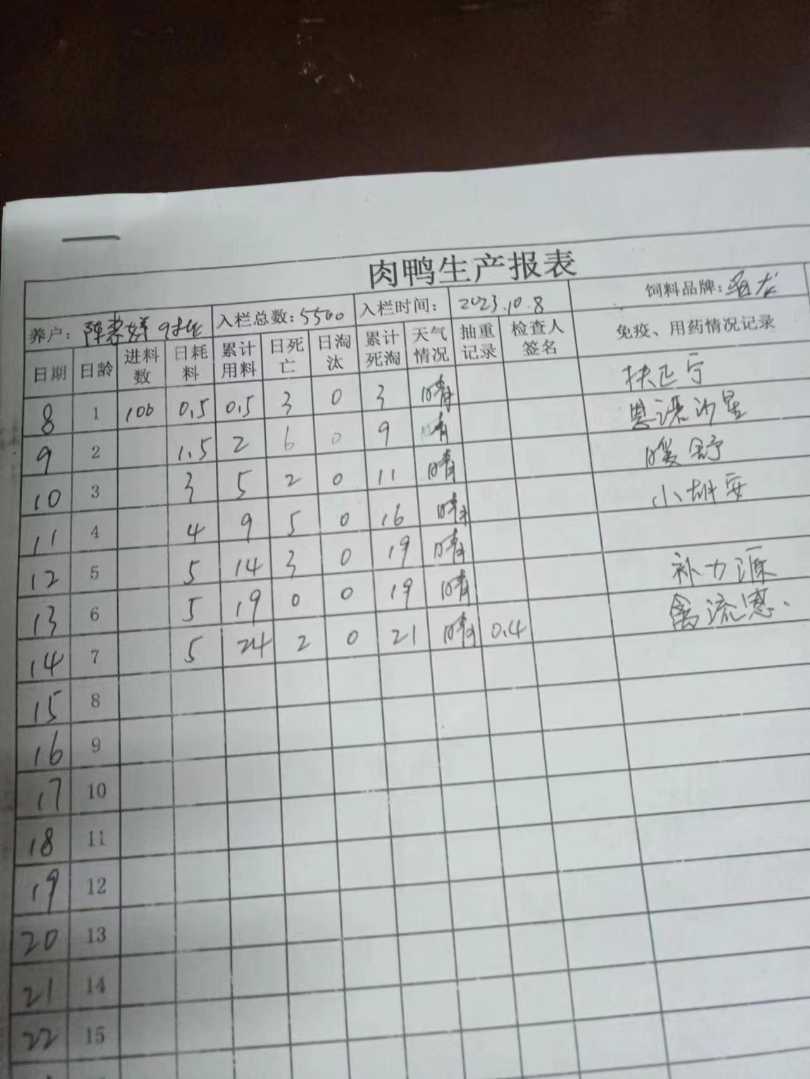 肉鸭生产报表
养户: 陈 入栏总数: 5500 入栏时间: 2023.10.8 饲料品牌: 龙
日期 日龄 进料数 日耗料 累计用料 日死亡 日淘汰 累计死淘 天气情况 抽重记录 检查人签名 免疫、用药情况记录
8 1 100 0.5 0.5 3 0 3 晴 扶正宁
9 2 1.5 2 6 0 9 晴 沙星
10 3 3 5 2 0 11 晴 暖舒
11 4 4 9 5 0 16 晴 小
12 5 5 14 3 0 19 晴
13 6 5 19 0 0 19 晴 补力源
14 7 5 24 2 0 21 晴 0.4 禽流感.
15 8
16 9
17 10
18 11
19 12
20 13
21 14
22 15